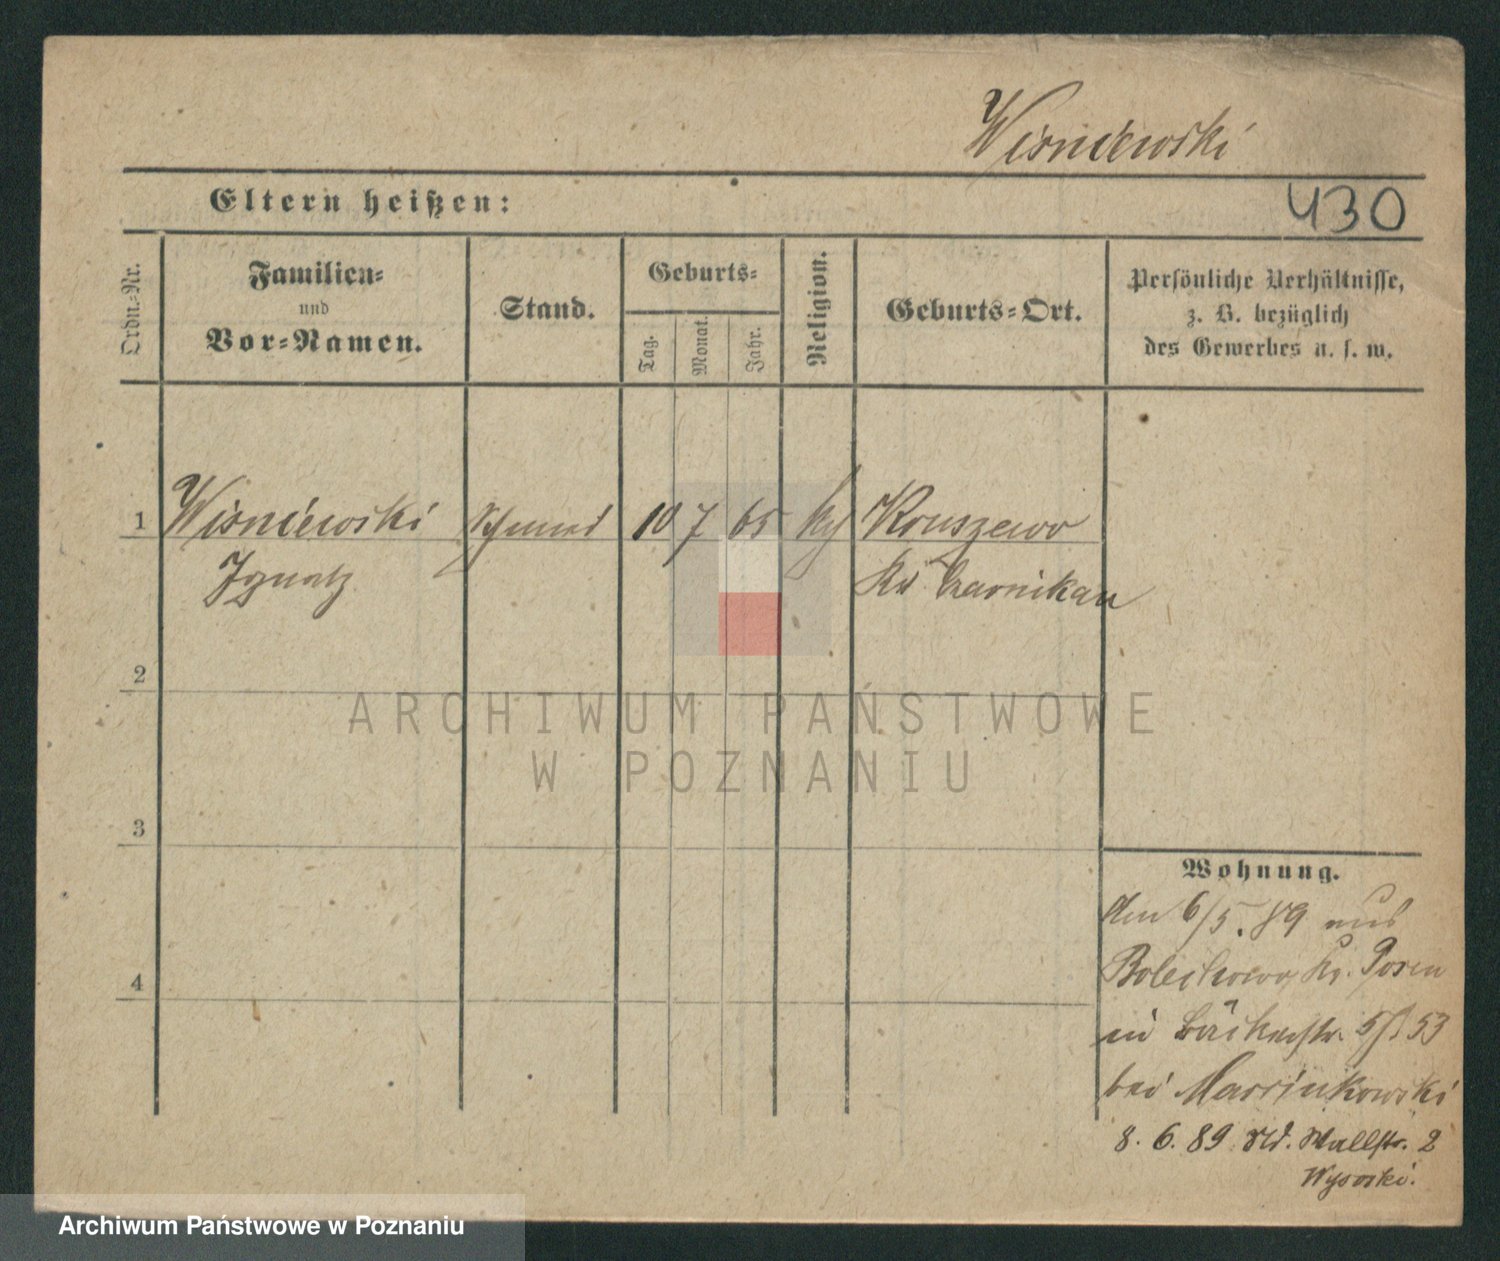 Wisniewski
430
Eltern heißen:
Ordn.-Nr.
Familien-
und
Vor-Namen.
Stand.
Geburts-
Tag.
Monat.
Jahr.
Religion.
Geburts-Ort.
Persönliche Verhältnisse,
z. B. bezüglich
des Gewerbes u. s. w.
1 Wisniewski Schmied 10 7 65 Kruszewo
Ignatz Kr Czarnikau
2
3
4
Wohnung.
den 6/5. 89 aus
Bolechowo, Kr. Posen
in Bäckerstr. 53
bei Marcinkowski
8. 6. 89 Wallstr. 2
Wysocki.
ARCHIWUM PAŃSTWOWE
W POZNANIU
Archiwum Państwowe w Poznaniu